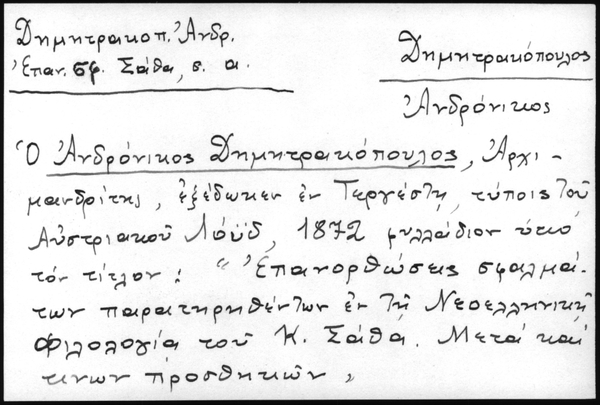 Δημητρακοπ. Ἀνδρ.
Ἐπαν. σφ. Σάθα, σ. α.
Δημητρακόπουλος
Ἀνδρόνικος
Ὁ Ἀνδρόνικος Δημητρακόπουλος, Ἀρχι-
μανδρίτης, ἐξέδωκεν ἐν Τεργέστῃ, τύποις τοῦ
Αὐστριακοῦ Λόϋδ, 1872 φυλλάδιον ὑπὸ
τὸν τίτλον: "Ἐπανορθώσεις σφαλμά-
των παρατηρηθέντων ἐν τῇ Νεοελληνικῇ
Φιλολογίᾳ τοῦ Κ. Σάθα. Μετὰ καί
τινων προσθηκῶν"